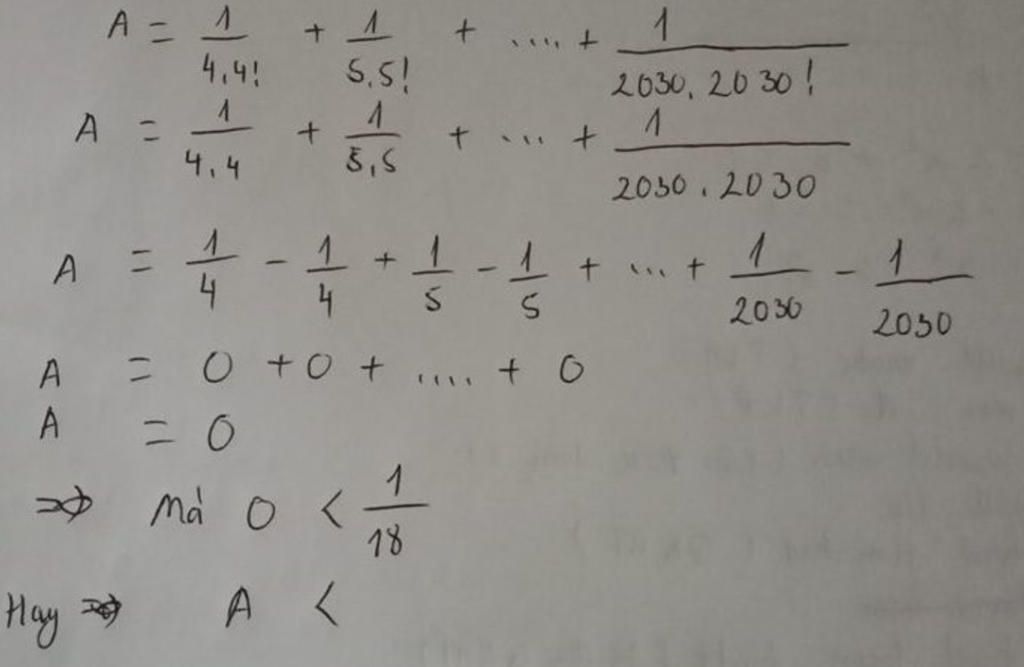 A = 1/4.4! + 1/5.5! + .... + 1/2030.2030!
A = 1/4.4 + 1/5.5 + ... + 1/2030.2030
A = 1/4 - 1/4 + 1/5 - 1/5 + ... + 1/2030 - 1/2030
A = 0 + 0 + .... + 0
A = 0
=> Mà 0 < 1/18
Hay => A <